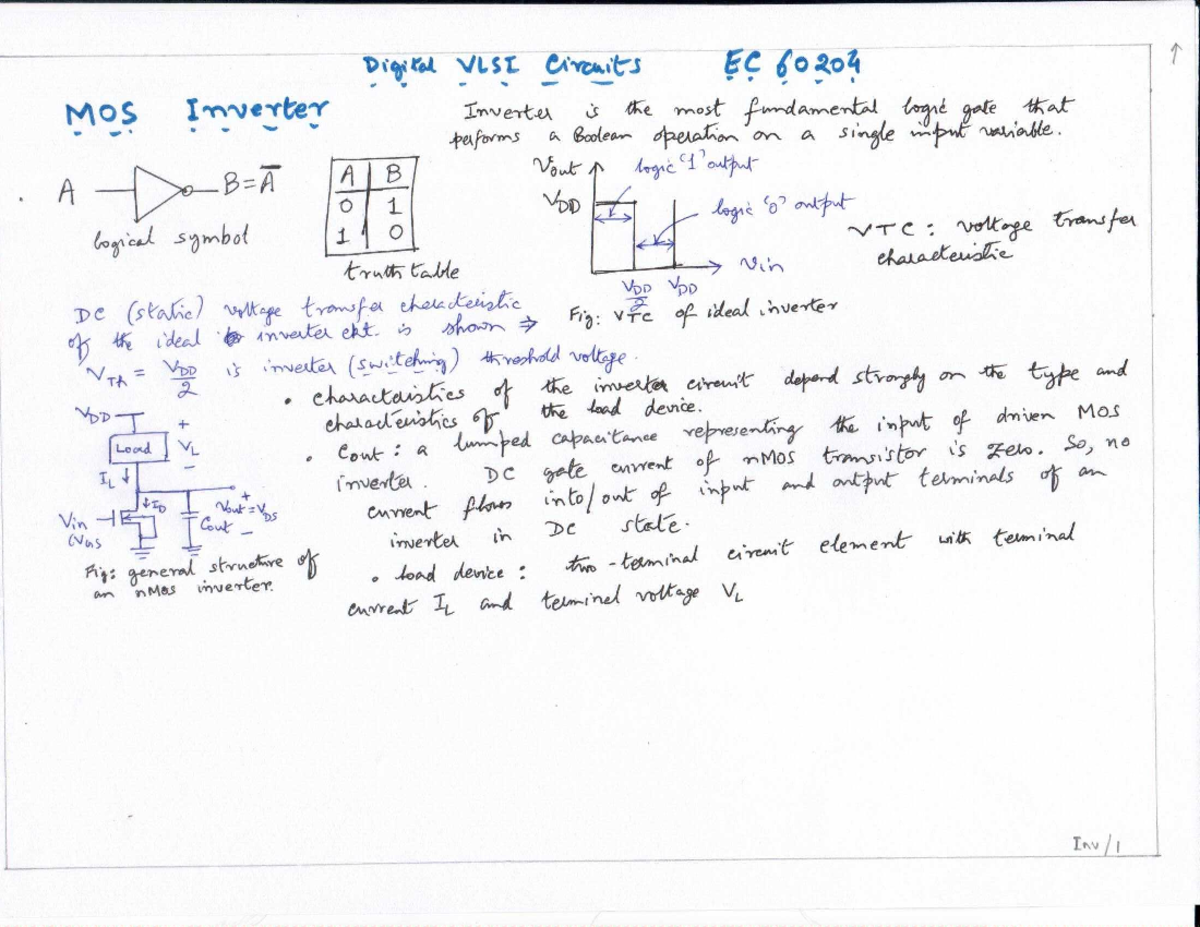 Digital VLSI Circuits EC 60204
MOS Inverter
Inverter is the most fundamental logic gate that
performs a Boolean operation on a single input variable.
A B = A̅
logical symbol
A B
0 1
1 0
truth table
Vout
VDD
logic '1' output
logic '0' output
Vin
VDD/2 VDD
Fig: VTC of ideal inverter
VTC : voltage transfer
characteristic
DC (static) voltage transfer characteristic
of the ideal inverter ckt. is shown ⇒
VTh = VDD/2 is inverter (switching) threshold voltage.
• characteristics of the inverter circuit depend strongly on the type and
characteristics of the load device.
• Cout : a lumped capacitance representing the input of driven MOS
inverter. DC gate current of nMOS transistor is zero. So, no
current flows into/out of input and output terminals of an
inverter in DC state.
• load device : two-terminal circuit element with terminal
current IL and terminal voltage VL
VDD
Load
+
VL
-
IL ↓
↓ ID
+
Vout = VDS
-
Cout
Vin
(VGS
Fig: general structure of
an nMOS inverter.
Inv/1